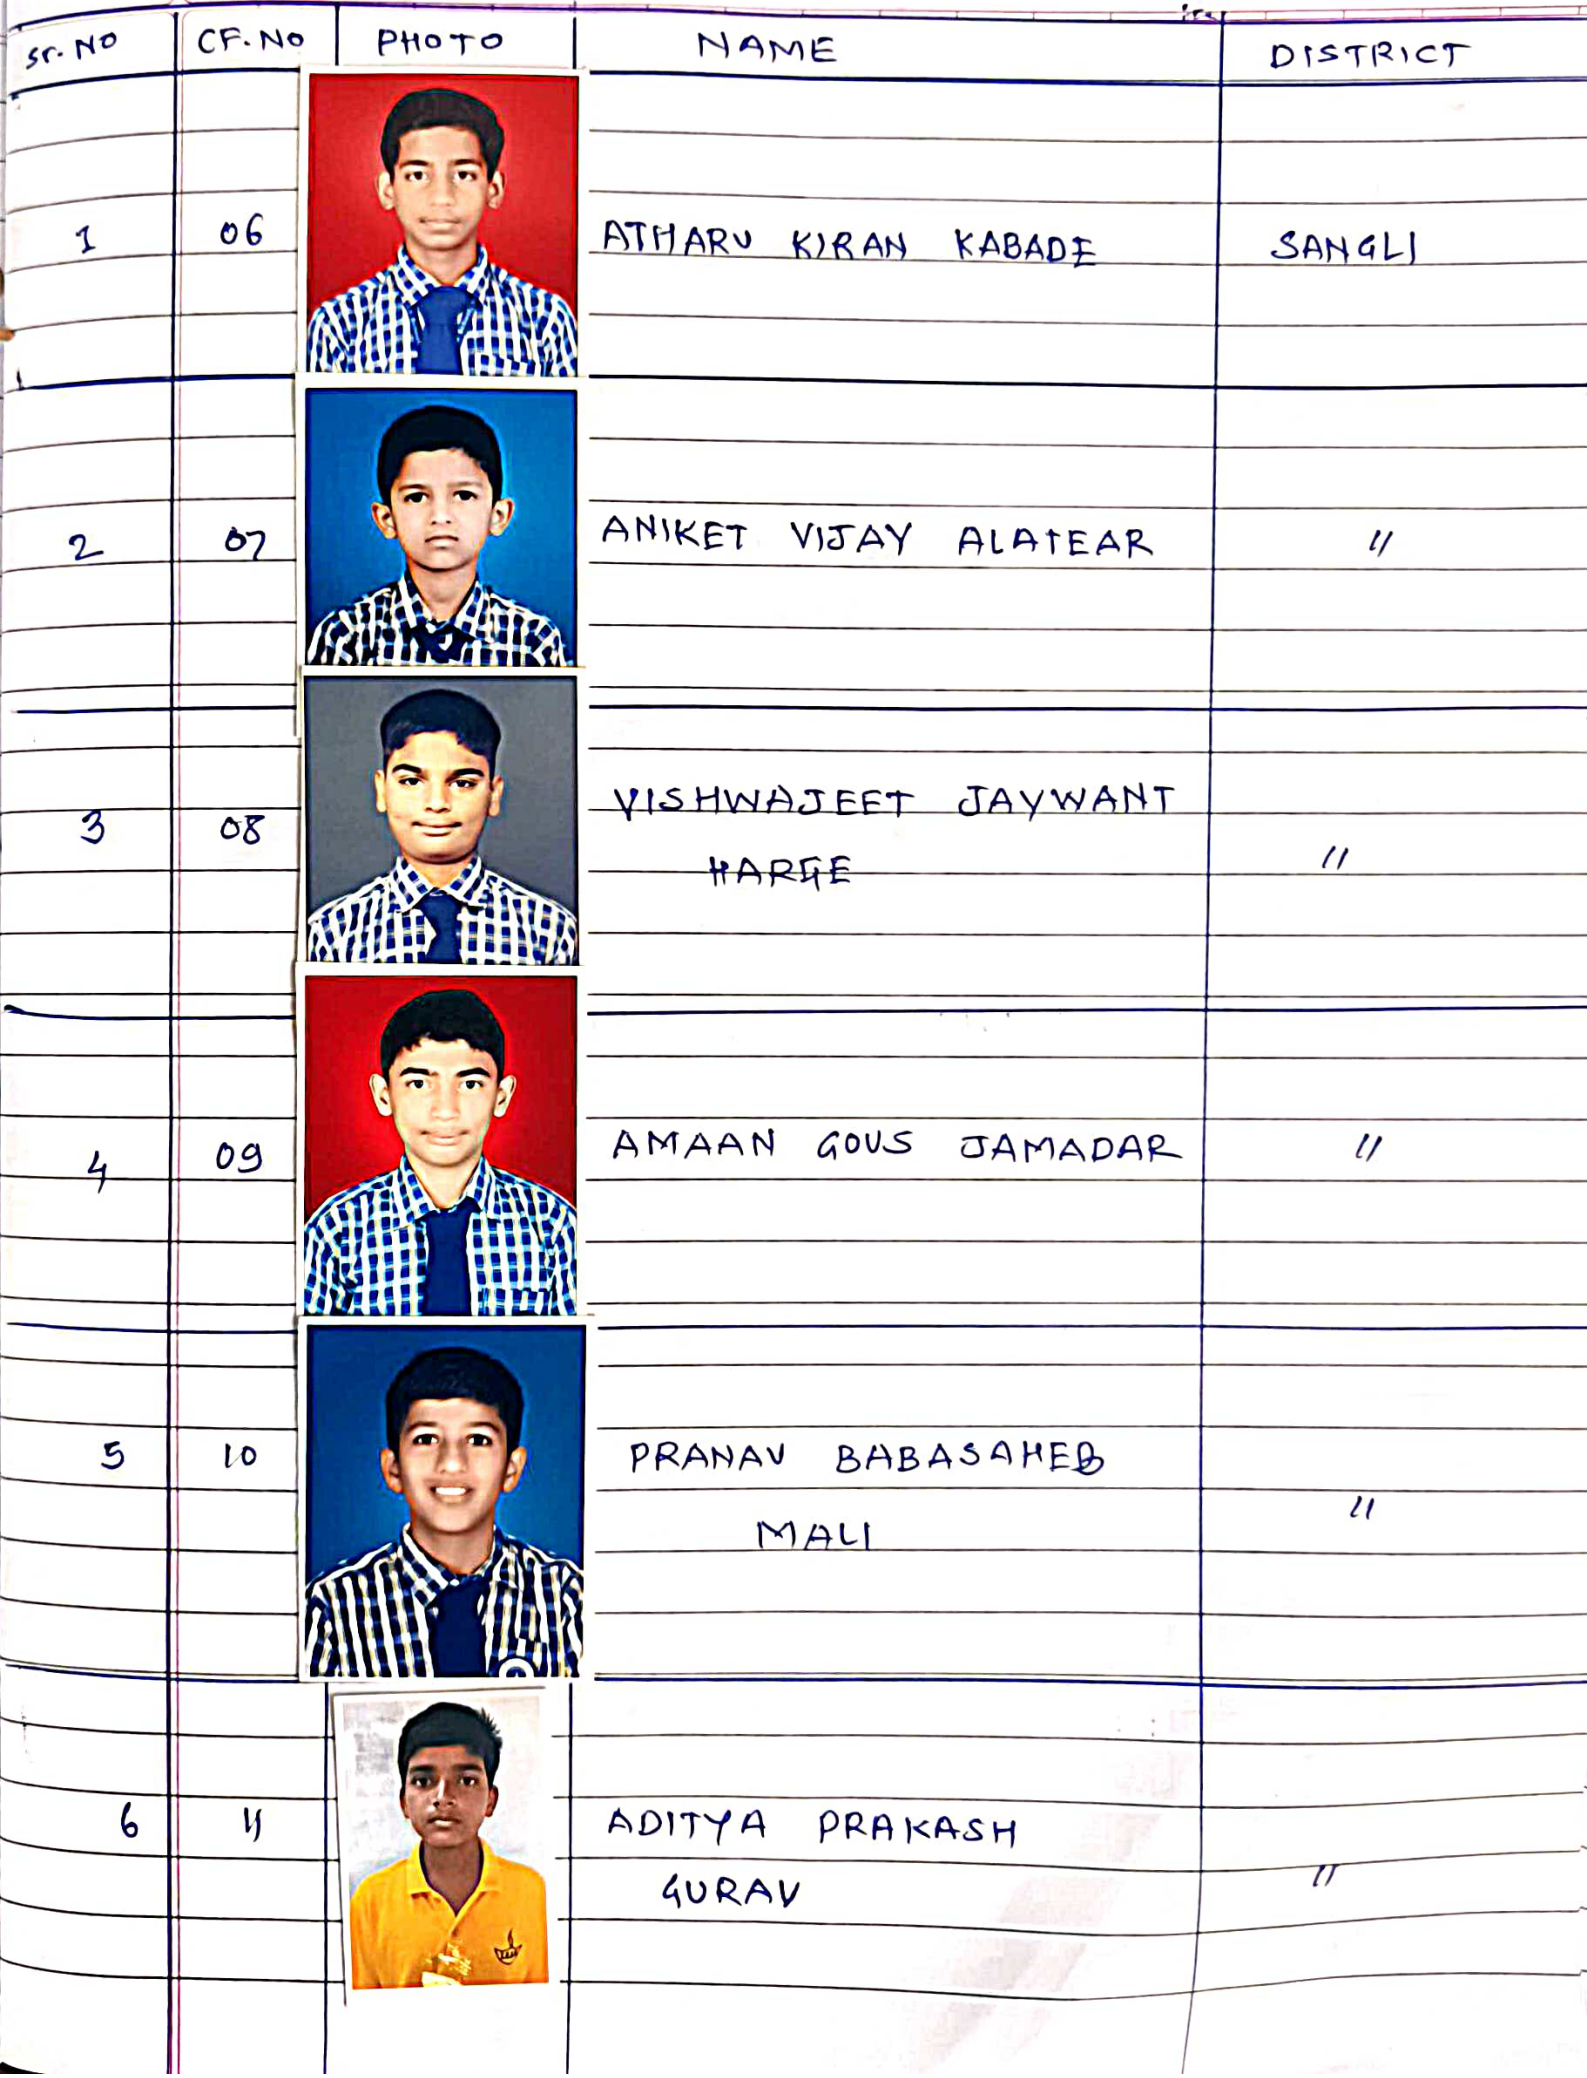 Sr. NO CF. No PHOTO NAME DISTRICT
1 06 ATHARV KIRAN KABADE SANGLI
2 07 ANIKET VIJAY ALATEAR "
3 08 VISHWAJEET JAYWANT
HARGE "
4 09 AMAAN GOUS JAMADAR "
5 10 PRANAV BABASAHEB
MALI "
6 11 ADITYA PRAKASH
GURAV "